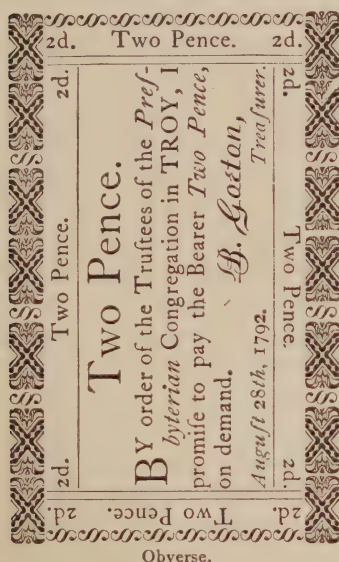 2d. Two Pence. 2d.
2d. Two Pence. 2d.
Two Pence.
BY order of the Truſtees of the Preſ-
byterian Congregation in TROY, I
promiſe to pay the Bearer Two Pence,
on demand.
B. Gorton,
Auguſt 28th, 1792. Treaſurer.
2d. Two Pence. 2d.
2d. Two Pence. 2d.
Obverse.